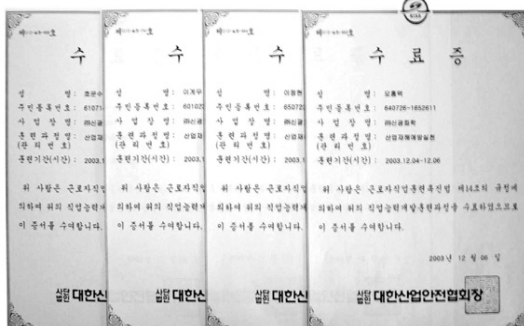 수
성 명 :
주민등록번호 : 61071
사 업 장 명 : ㈜신광
훈련과정명 : 산업재
(관 리 번 호)
훈련기간(시간) : 2003.1
위 사람은 근로자직업
의하여 위의 직업능력개
이 증서를 수여합니다.
사단법인 대한산
수
성 명 :
주민등록번호 : 60102
사 업 장 명 : ㈜신광
훈련과정명 : 산업재
(관 리 번 호)
훈련기간(시간) : 2003.1
위 사람은 근로자직업
의하여 위의 직업능력개
이 증서를 수여합니다.
사단법인 대한산
수
성 명 :
주민등록번호 : 65072
사 업 장 명 : ㈜신광
훈련과정명 : 산업재
(관 리 번 호)
훈련기간(시간) : 2003.1
위 사람은 근로자직업
의하여 위의 직업능력개
이 증서를 수여합니다.
사단법인 대한산
수 료 증
성 명 :
주민등록번호 : 640726-1652611
사 업 장 명 : ㈜신광화학
훈련과정명 : 산업재해예방실천
(관 리 번 호)
훈련기간(시간) : 2003.12.04-12.06
위 사람은 근로자직업훈련촉진법 제14조의 규정에
의하여 위의 직업능력개발훈련과정을 수료하였으므로
이 증서를 수여합니다.
2003년 12월 06일
사단법인 대한산업안전협회장